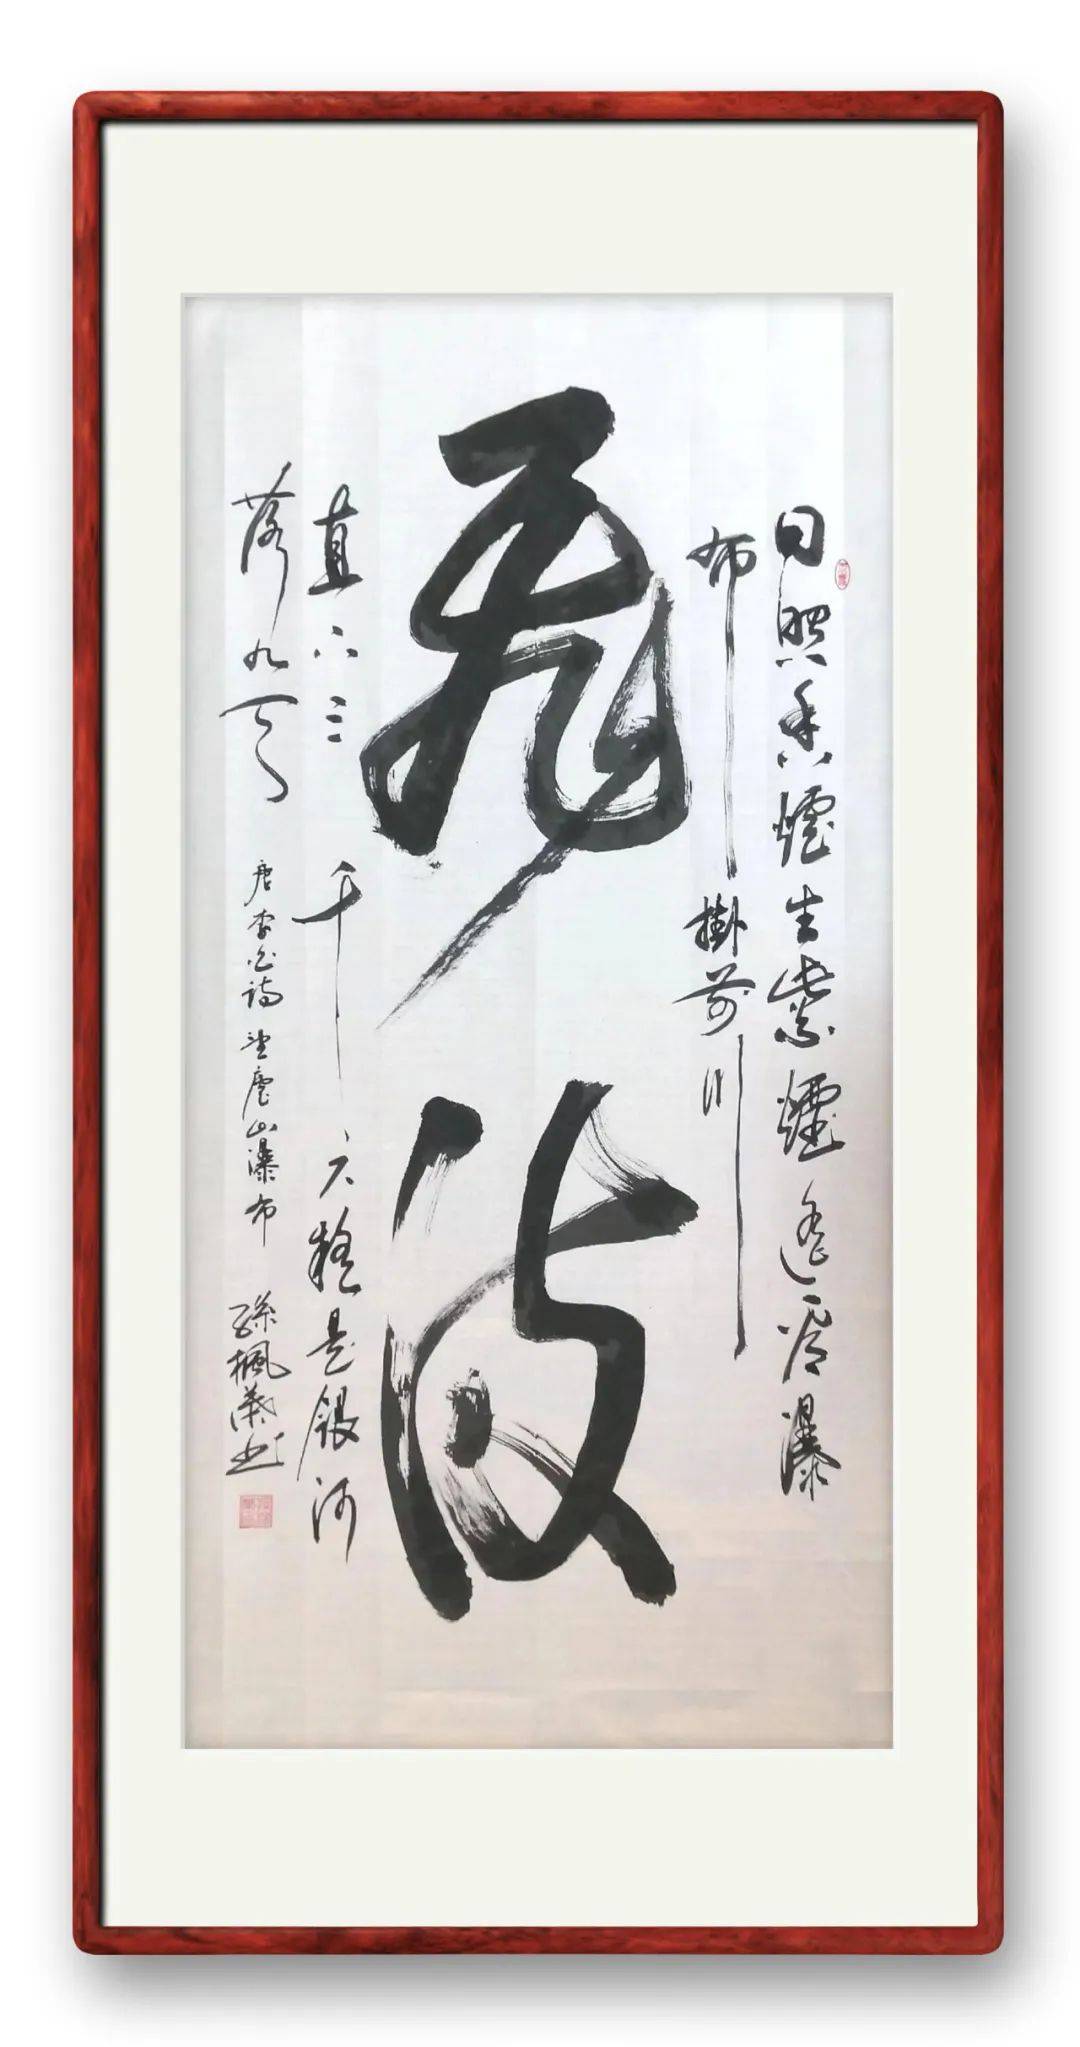 日照香爐生紫煙遙看瀑
布掛前川
飛流
直下三千尺疑是銀河
落九天 唐李白詩望廬山瀑布 孫楓葉书